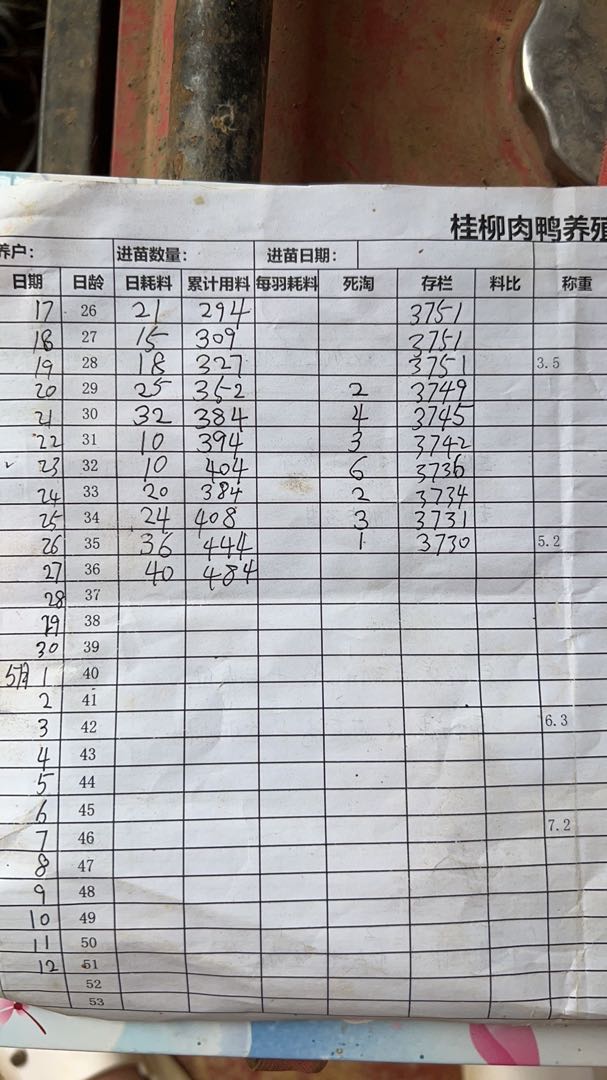 桂柳肉鸭养殖
养户: 进苗数量: 进苗日期:
日期 日龄 日耗料 累计用料 每羽耗料 死淘 存栏 料比 称重
17 26 21 294 3751
18 27 15 309 3751
19 28 18 327 3751 3.5
20 29 25 352 2 3749
21 30 32 384 4 3745
22 31 10 394 3 3742
23 32 10 404 6 3736
24 33 20 384 2 3734
25 34 24 408 3 3731
26 35 36 444 1 3730 5.2
27 36 40 484
28 37
29 38
30 39
5月 1 40
2 41
3 42 6.3
4 43
5 44
6 45
7 46 7.2
8 47
9 48
10 49
11 50
12 51
52
53